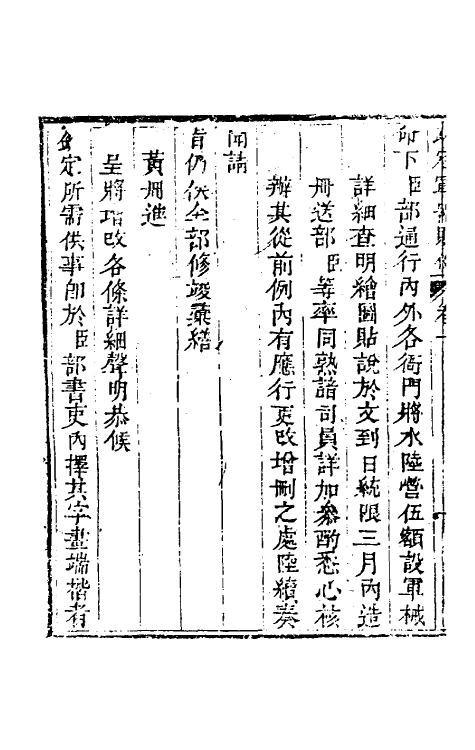 勅下臣部通行內外各衙門將水陸營伍額設軍械
詳細查明繪圖貼說於文到日統限三月內造
冊送部臣等率同熟諳司員詳加叅酌悉心核
辦其從前例內有應行更改增刪之處陸續奏
聞請
旨仍俟全部修竣彙繕
黃冊進
呈將增改各條詳細聲明恭候
欽定所需供事卽於臣部書吏內擇其字畫端楷者